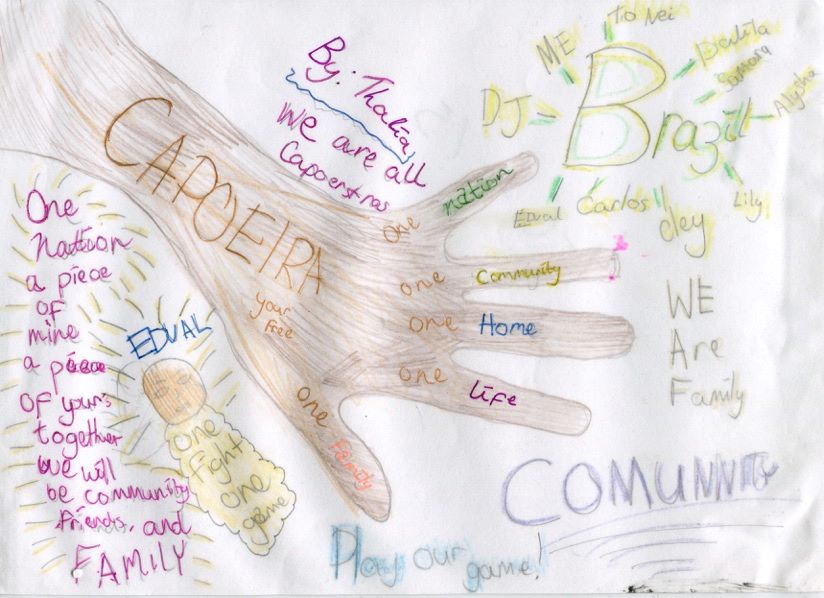 By: Thalia
We are all
Capoerstras
CAPOEIRA
your free
one nation
one Community
one Home
one life
one Family
To Nei
ME
DJ
Brazil
Samara
Alysha
Lily
cley
Carlos
Edval
WE
Are
Family
COMUNNITY
Play our game!
One
nation
a piece
of
mine
a piece
of your's
together
we will
be community
friends, and
FAMILY
EDVAL
one
fight
one
game